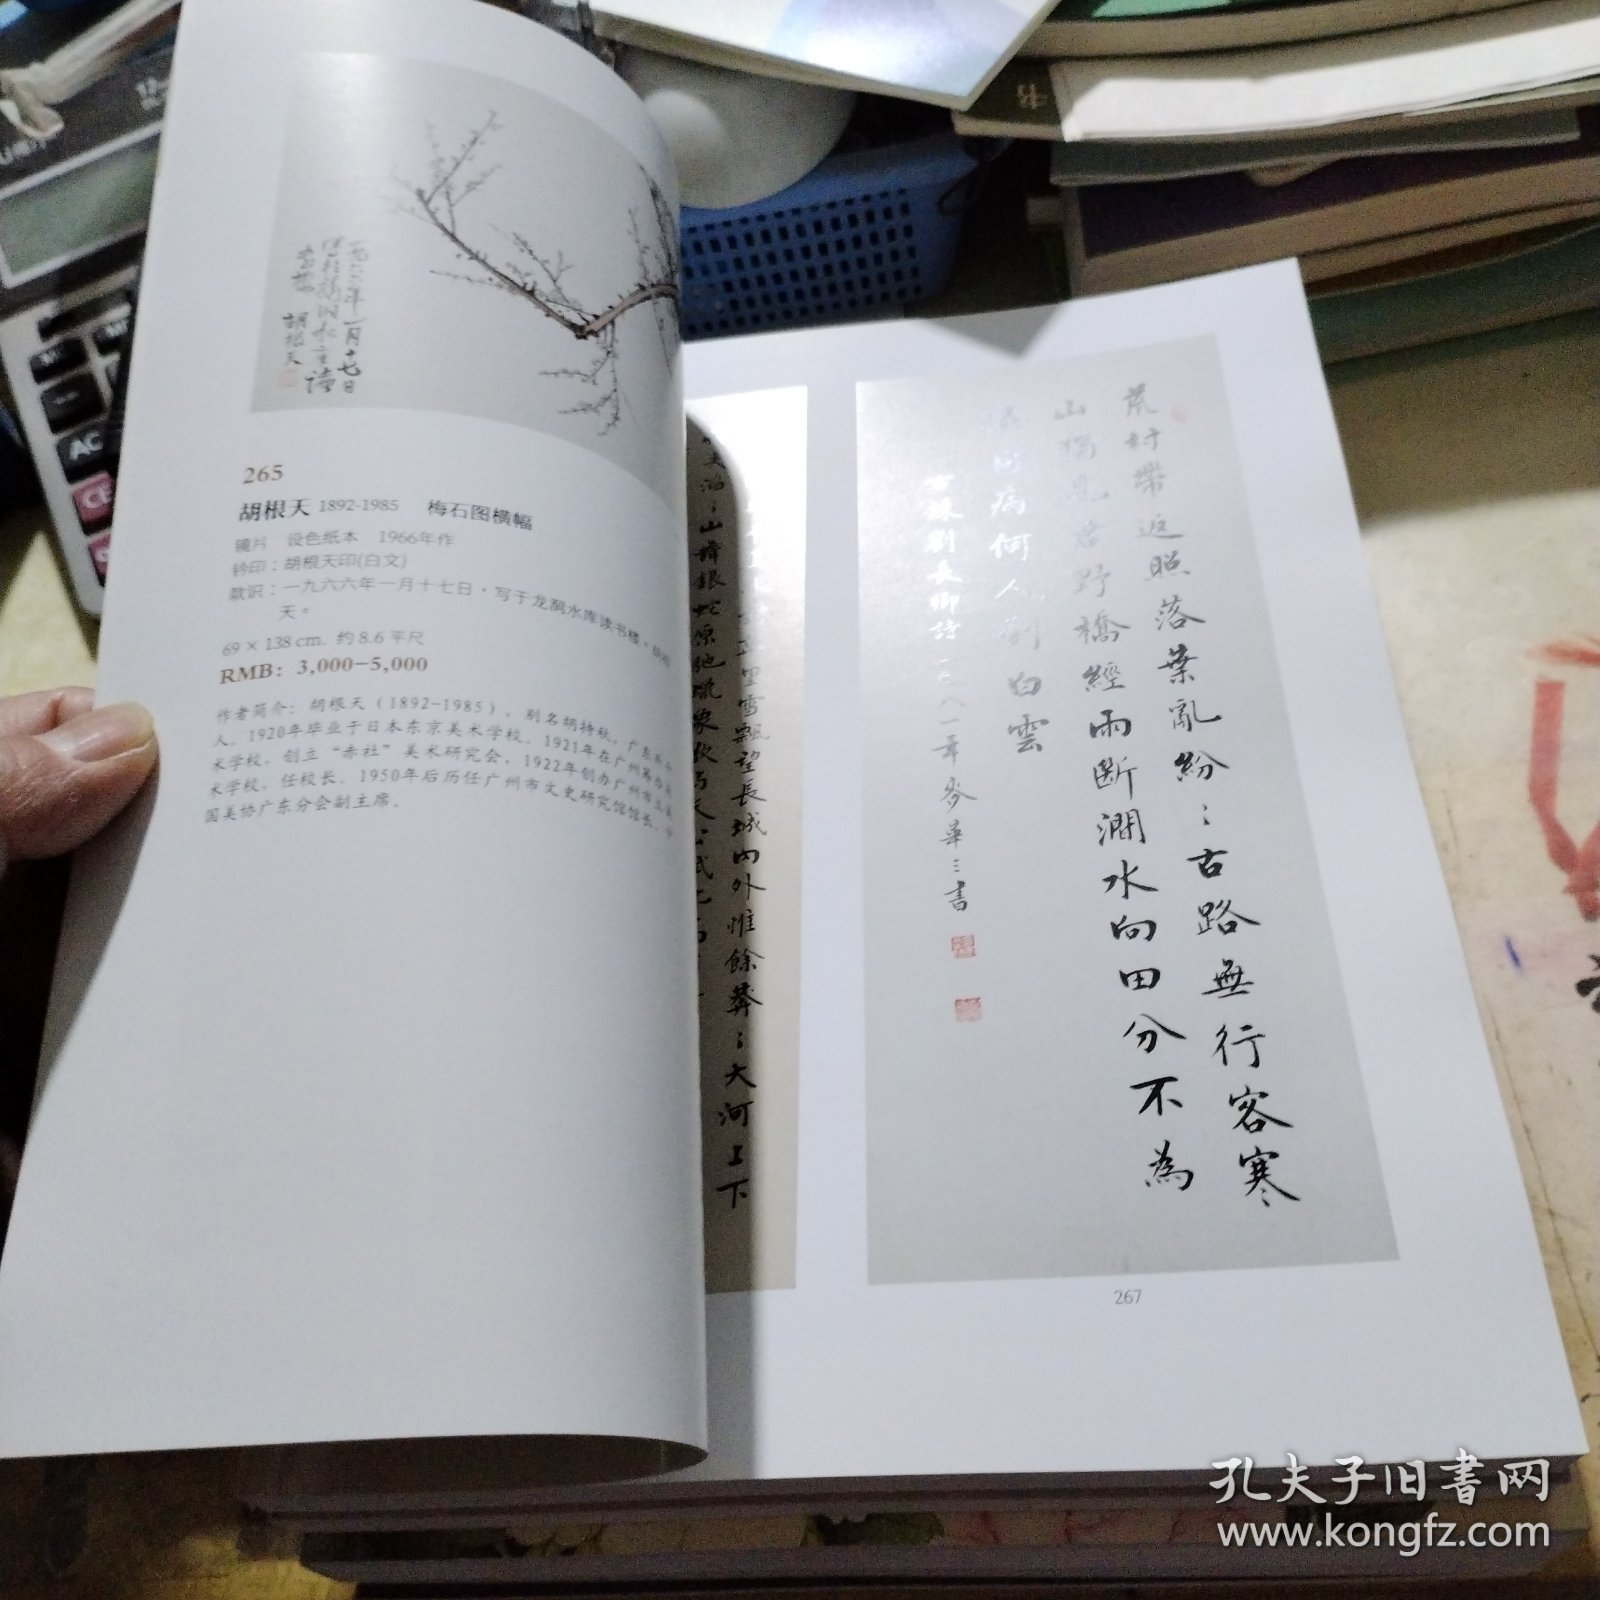 一九六六年一月十七日
胡根天
265
胡根天 1892-1985 梅石图横幅
镜片 设色纸本 1966年作
钤印：胡根天印(白文)
款识：一九六六年一月十七日，写于龙洞水库读书楼。胡根
天。
69 × 138 cm. 约 8.6 平尺
RMB: 3,000–5,000
作者简介：胡根天（1892-1985），别名胡持秋，广东开平
人。1920年毕业于日本东京美术学校。1921年在广州筹办
术学校，创立“赤社”美术研究会，1922年创办广州市立美
术学校，任校长。1950年后历任广州市文史研究馆馆长、中
国美协广东分会副主席。
雪飘望長城內外惟餘莽ミ大河上下
山舞銀蛇原馳蠟象欲与天公試比高
荒村帶返照落葉亂紛ミ古路無行客寒
山獨見君野橋經雨斷澗水向田分不為
病何人到白雲
右錄劉長卿詩 一九八一年麥華三書
267
AC
CE
孔夫子旧書网
www.kongfz.com